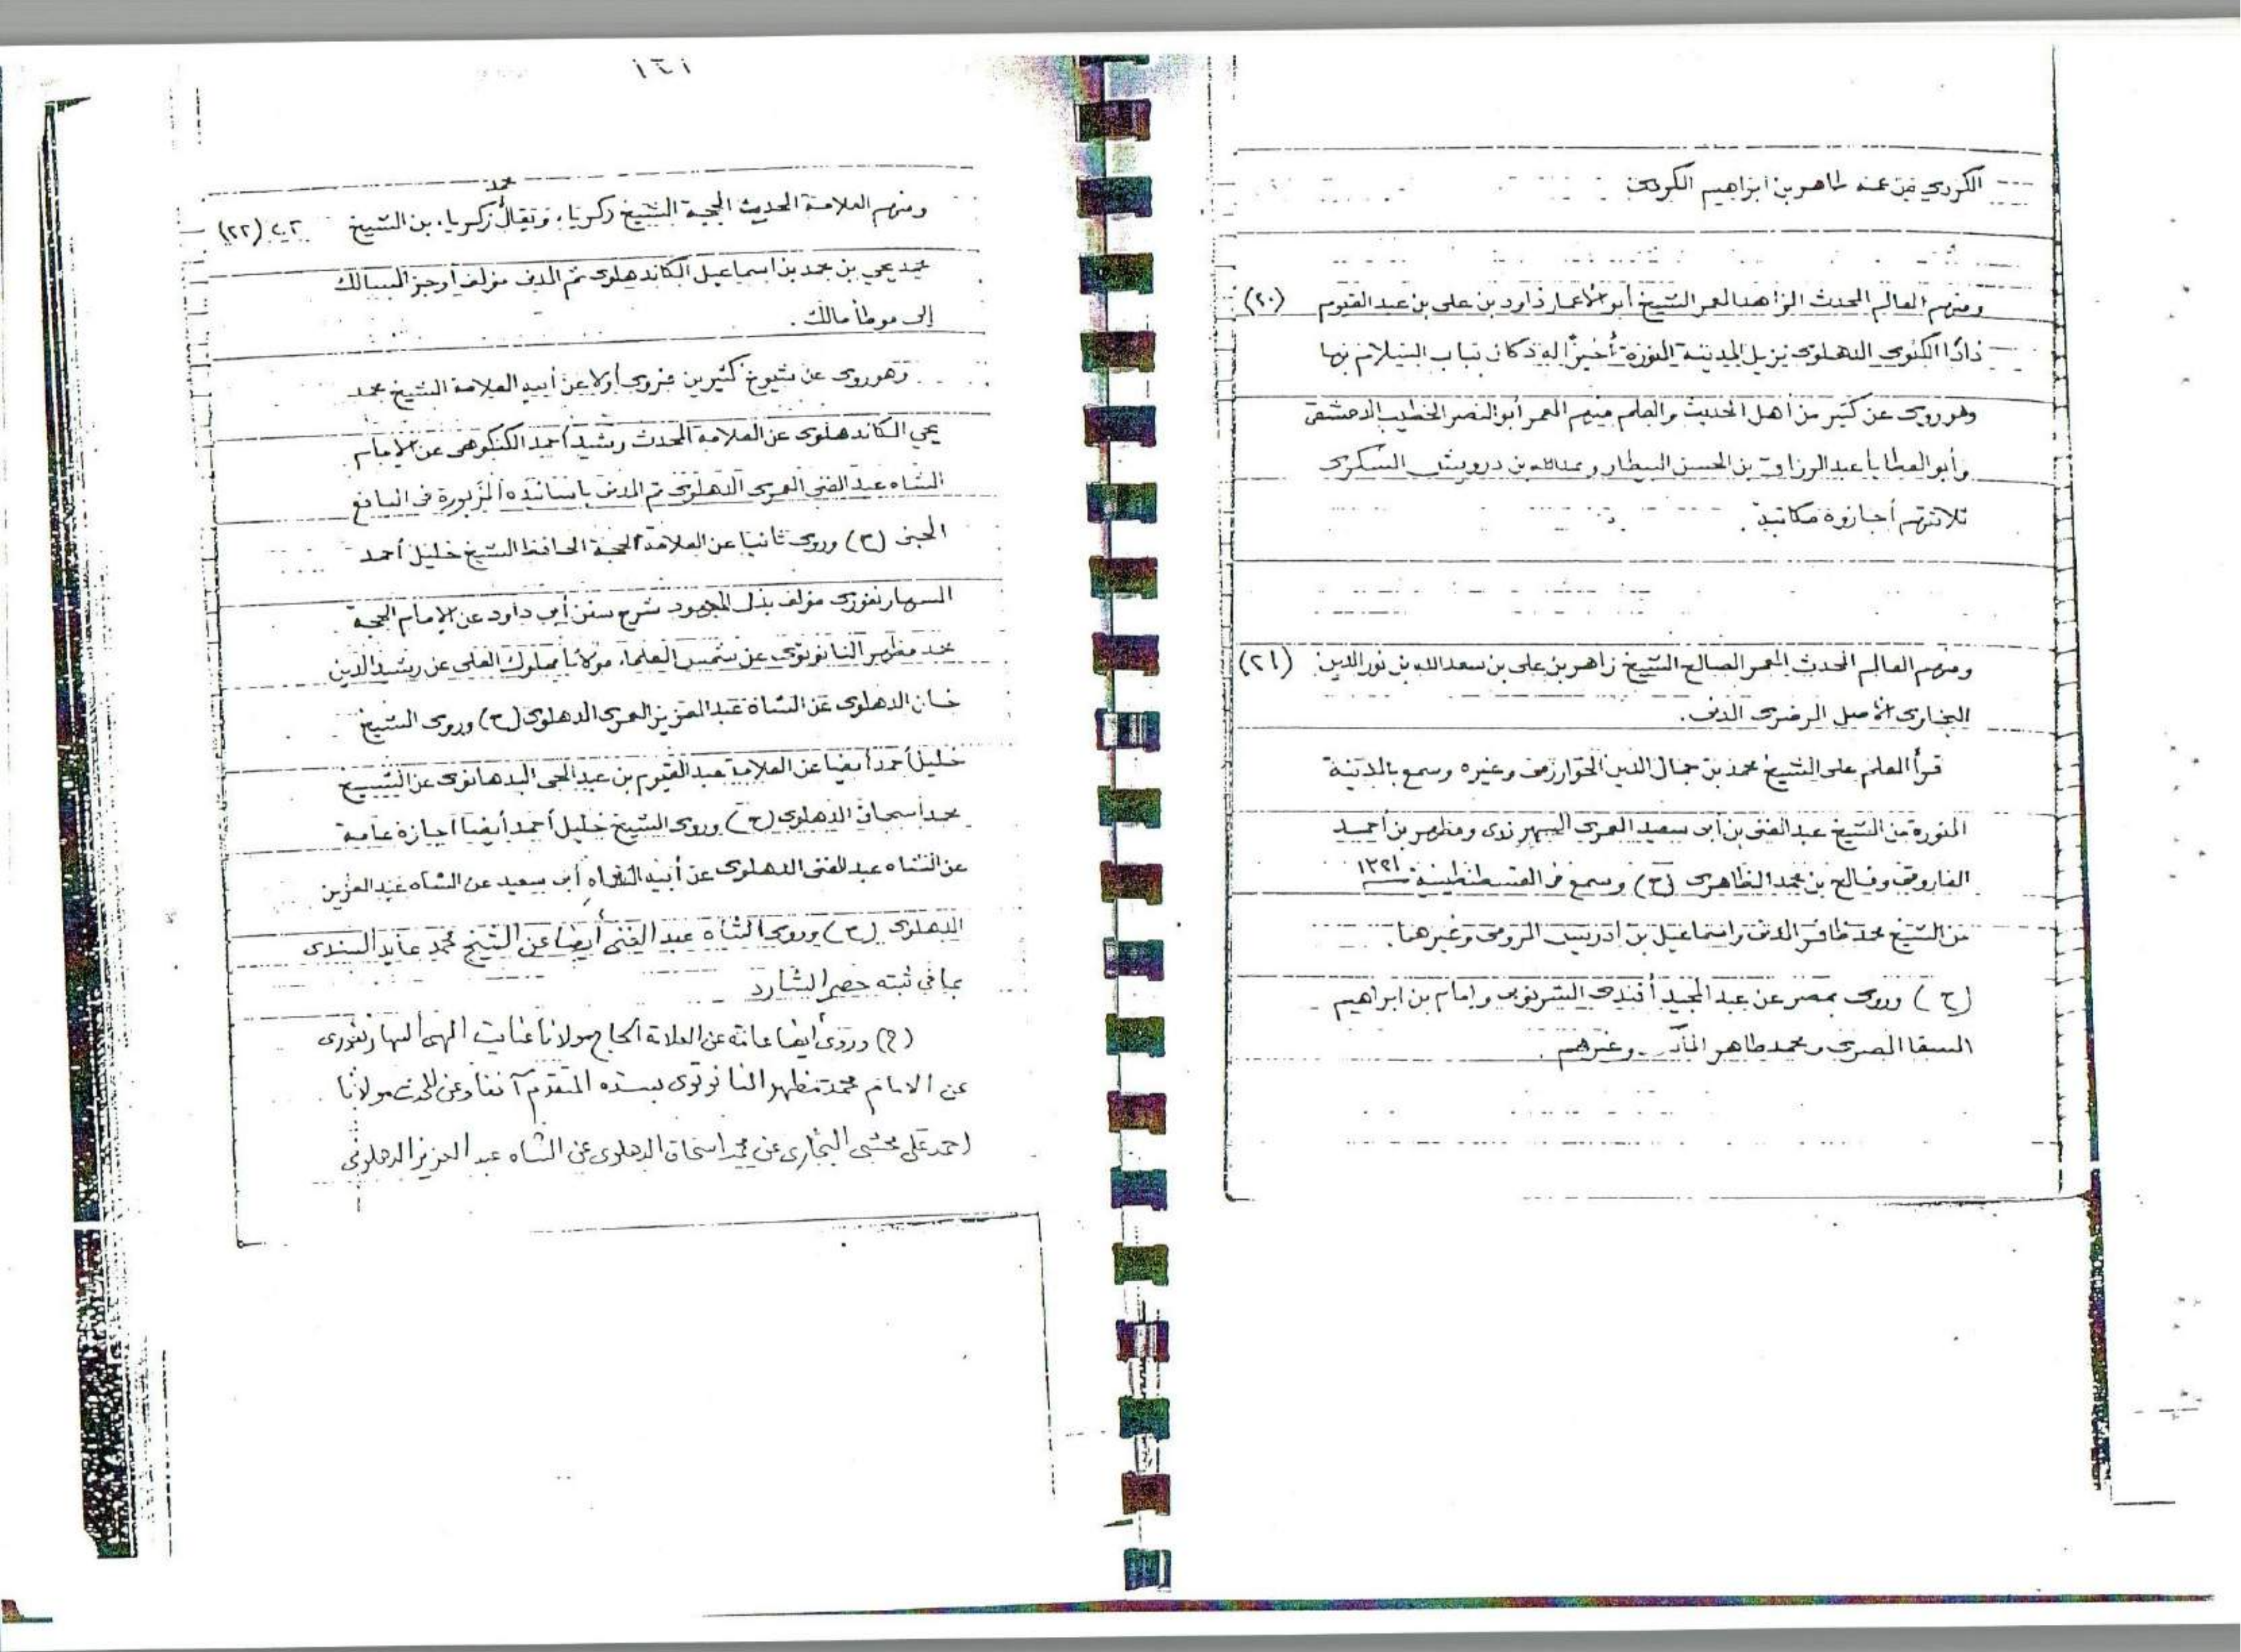 الكردي عن عمه طاهر بن ابراهيم الكردي
ومنهم العالم المحدث الزاهد المعمر الشيخ أبو الأعمار داود بن على بن عبد القيوم (٢٠)
دادا الكنوى الدهلوى نزيل المدينة المنورة أخيرًا له دكان بباب السلام بها
وهو روى عن كثير من أهل الحديث والعلم منهم المعمر أبو النصر الخطيب الدمشقى
وأبو العطايا عبد الرزاق بن الحسن البيطار وعبد الله بن درويش السكرى
ثلاثتهم أجازوه مكاتبة.
ومنهم العالم المحدث المعمر الصالح الشيخ زاهر بن على بن سعد الله بن نور الدين (٢١)
البخارى الأصل المدنى.
قرأ العلم على الشيخ محمد بن جمال الدين الخوارزمى وغيره وسمع بالمدينة
المنورة من الشيخ عبد الغنى بن أبى سعيد العمرى ومظهر بن أحمد
الفاروقى وفالح بن محمد الظاهرى (ح) وسمع فى القسطنطينية ١٣٢١
من الشيخ محمد ظافر المدنى واسماعيل بن ادريس الرومى وغيرهما.
(ح) وروى بمصر عن عبد المجيد أفندى الشرنوبى وإمام بن ابراهيم
السقا المصرى ومحمد طاهر وغيرهم.
ومنهم العلامة المحدث الحجة الشيخ زكريا، ويقال محمد زكريا، بن الشيخ (٢٢)
محمد يحي بن محمد بن اسماعيل الكاندهلوى ثم المدنى مؤلف أوجز المسالك
إلى موطأ مالك.
وهو روى عن شيوخ كثيرين فروى أولا عن أبيه العلامة الشيخ محمد
يحي الكاندهلوى عن العلامة المحدث رشيد أحمد الكنكوهى عن الإمام
الشاه عبد الغنى العمرى الدهلوى ثم المدنى بأسانيده المزبورة فى اليانع
الجنى (ح) وروى ثانيا عن العلامة الحجة الحافظ الشيخ خليل أحمد
السهارنفورى مؤلف بذل المجهود شرح سنن أبى داود عن الإمام الحجة
محمد مظهر النانوتوى عن شمس العلماء مولانا مملوك العلى عن رشيد الدين
خان الدهلوى عن الشاة عبد العزيز العمرى الدهلوى (ح) وروى الشيخ
خليل أحمد أيضا عن العلامة عبد القيوم بن عبد الحى البدهانوى عن الشيخ
محمد اسحاق الدهلوى (ح) وروى الشيخ خليل أحمد أيضا اجازة عامة
عن الشاه عبد الغنى الدهلوى عن أبيه الشاه أبى سعيد عن الشاه عبد العزيز
الدهلوى (ح) وروى الشاه عبد الغنى أيضا عن الشيخ محمد عابد السندى
بما فى ثبته حصر الشارد
(ح) وروى أيضا عامة عن العلامة الحاج مولانا عنايت الهى السهارنفورى
عن الامام محمد مظهر النانوتوى بسنده المتقدم آنفا وعن المحدث مولانا
احمد على محشى البخارى عن محمد اسحاق الدهلوى عن الشاه عبد العزيز الدهلوى